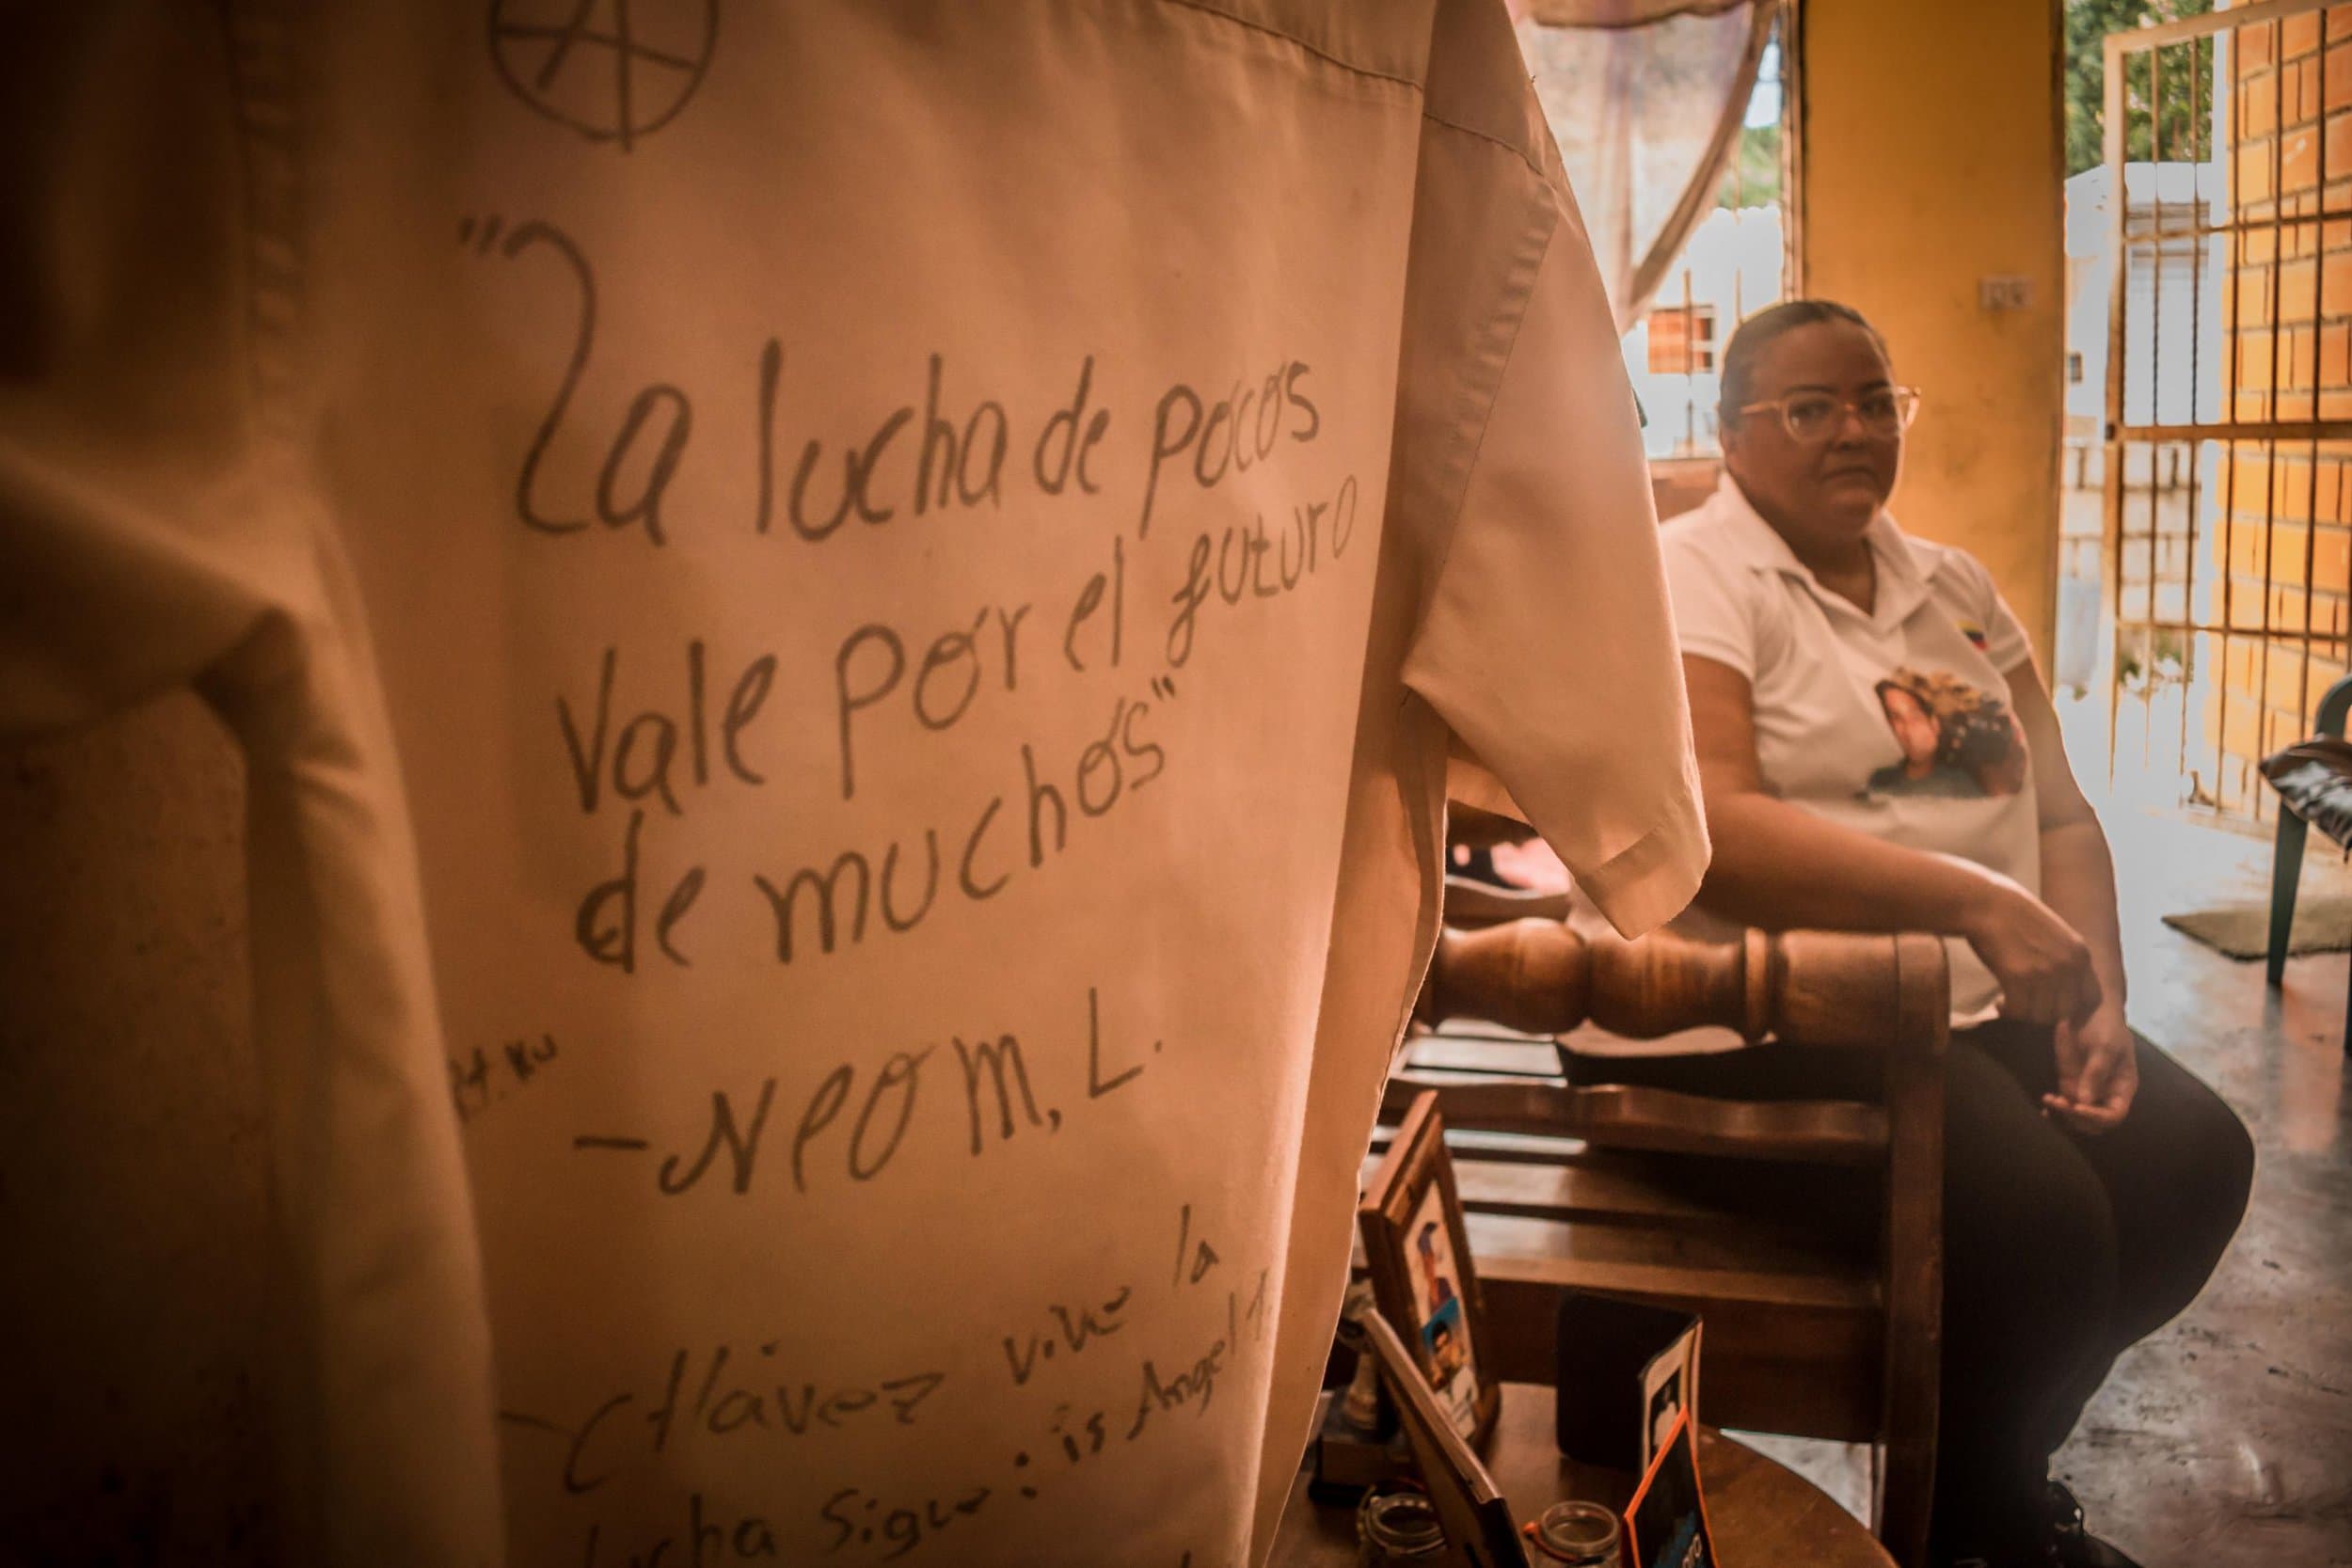 "La lucha de pocos
vale por el futuro
de muchos"
-Neom, L.
-CHávez vive la
lucha sigue: is Angel